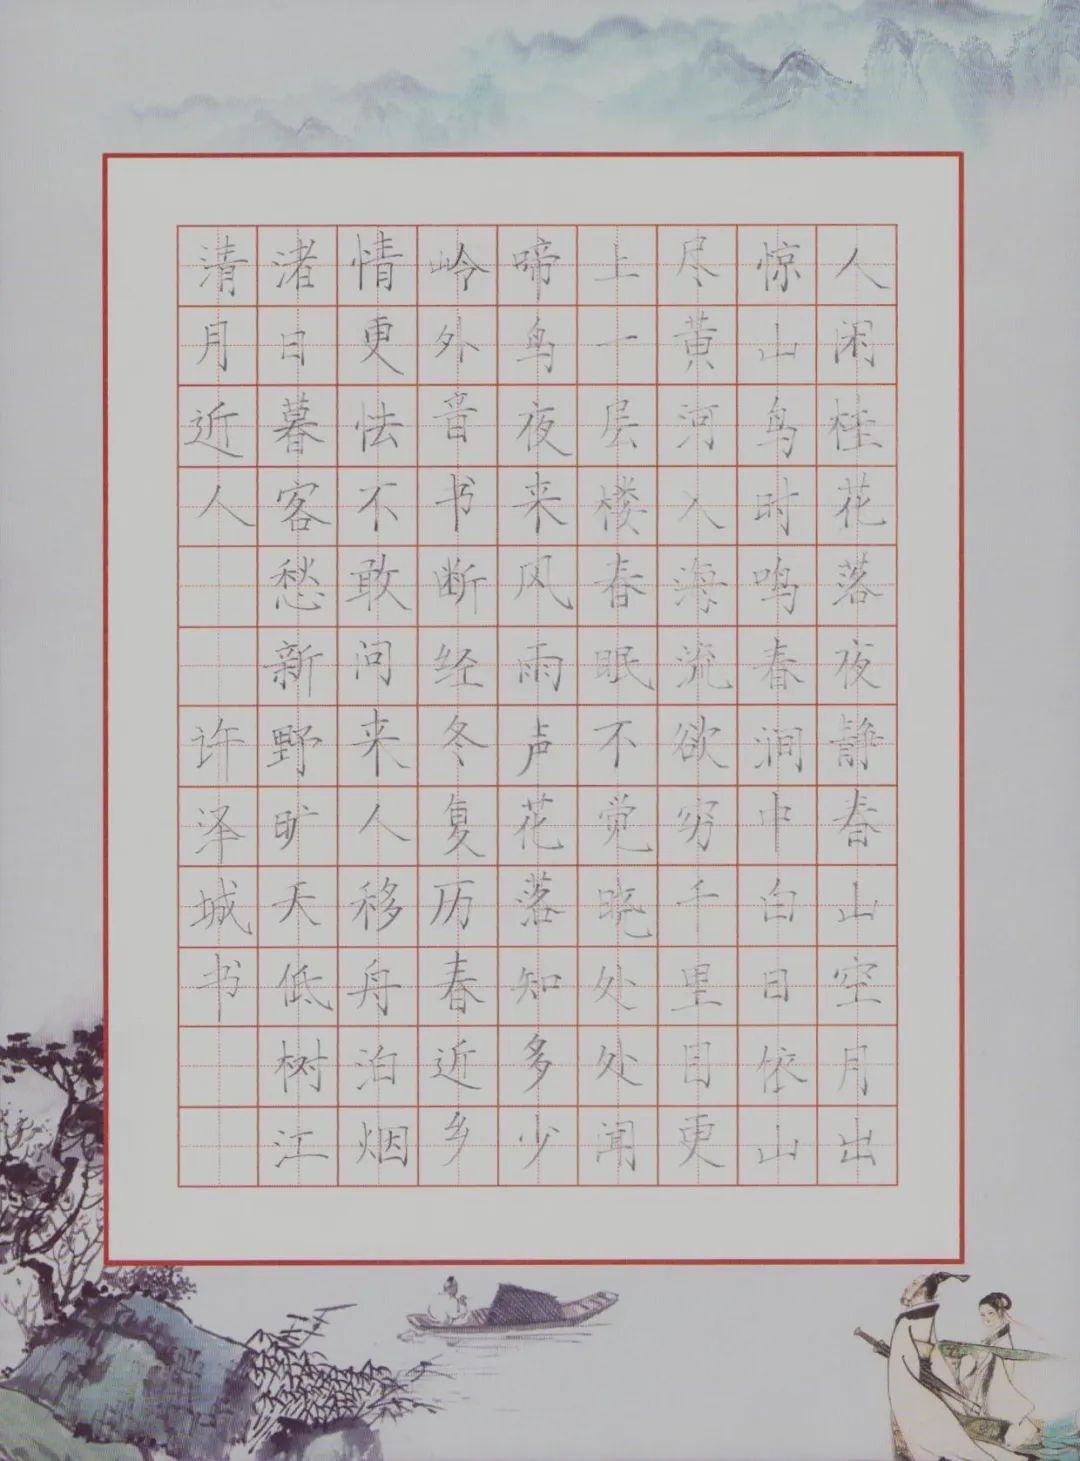 人闲桂花落夜静春山空月出
惊山鸟时鸣春涧中白日依山
尽黄河入海流欲穷千里目更
上一层楼春眠不觉晓处处闻
啼鸟夜来风雨声花落知多少
岭外音书断经冬复历春近乡
情更怯不敢问来人移舟泊烟
渚日暮客愁新野旷天低树江
清月近人 许泽城书